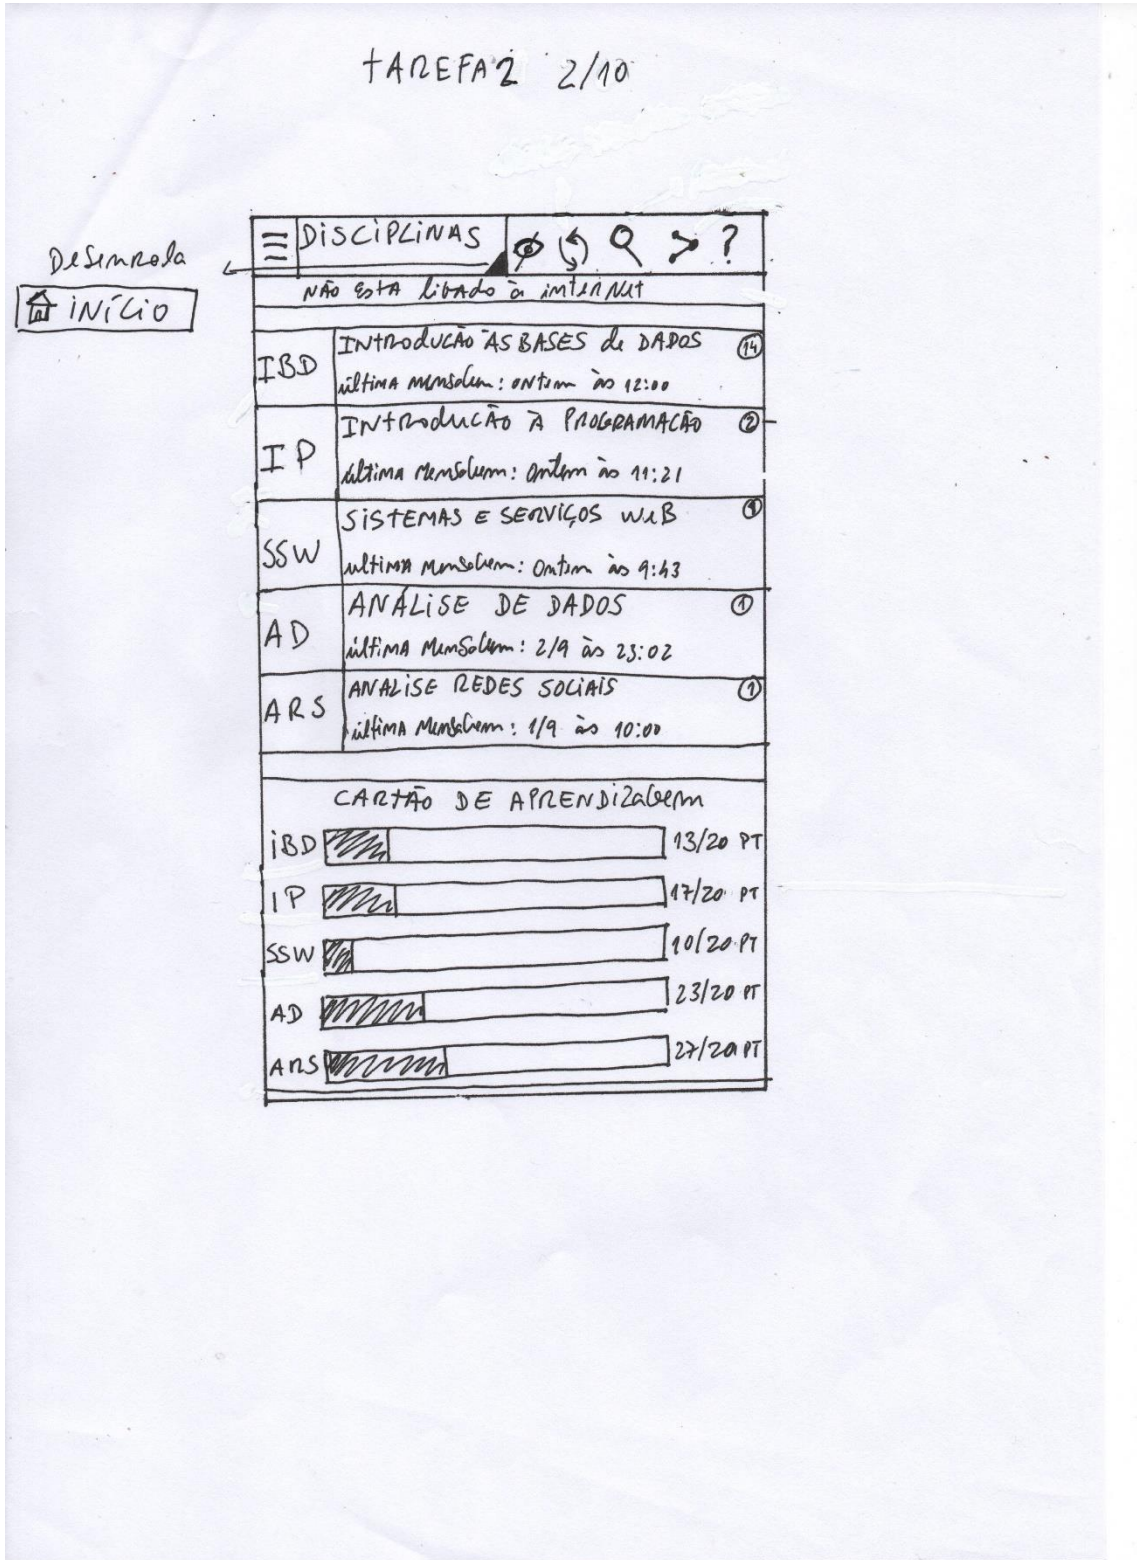 TAREFA 2 2/10
DISCIPLINAS ?
Desenrola
INÍCIO
NÃO ESTA ligado à internet
IBD
INTRODUCÃO ÀS BASES de DADOS 14
última mensagem: ontem às 12:00
IP
INTRODUCÃO À PROGRAMACÃO 2
última mensagem: ontem às 11:21
SSW
SISTEMAS E SERVIÇOS WEB 1
ultima mensagem: Ontem às 9:43
AD
ANÁLISE DE DADOS 1
última mensagem: 2/9 às 23:02
ARS
ANALISE REDES SOCIAIS 1
última mensagem: 1/9 às 10:00
CARTÃO DE APRENDIZAGEM
IBD 13/20 PT
IP 17/20 PT
SSW 10/20 PT
AD 23/20 PT
ARS 27/20 PT